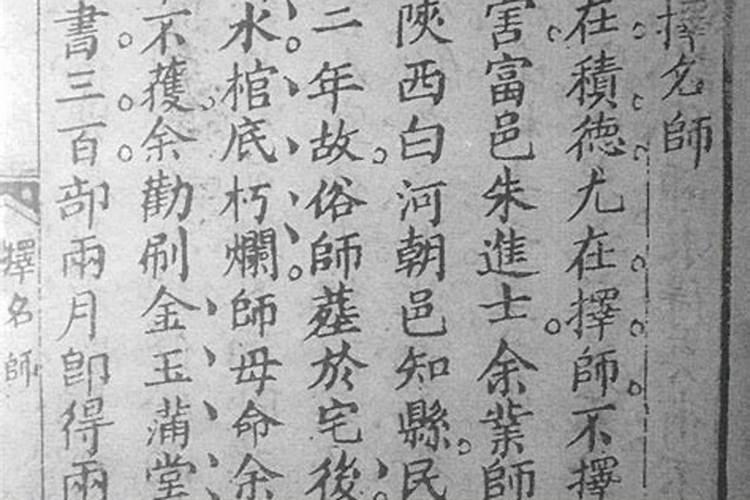 擇名師
在積德尤在擇師不擇
害富邑朱進士余業師
陝西白河朝邑知縣民
二年故俗師塟於宅後
水棺底朽爛師母命余
不蒦余勸刷金玉蒲堂
書三百部兩月卽得兩
擇名師